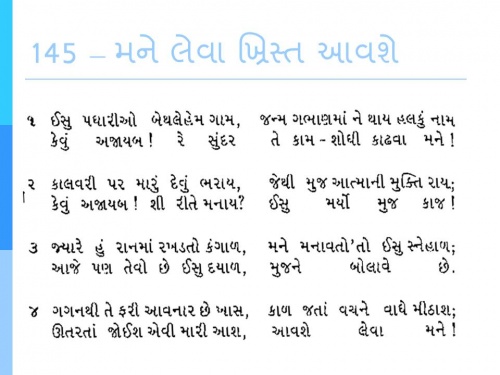 145 – મને લેવા ખ્રિસ્ત આવશે
૧ ઈસુ પધારીઓ બેથલેહેમ ગામ, જન્મ ગભાણમાં ને થાય હલકું નામ
કેવું અજાયબ ! રે સુંદર તે કામ – શોધી કાઢવા મને !
૨ કાલવરી પર મારું દેવું ભરાય, જેથી મુજ આત્માની મુક્તિ રાય;
કેવું અજાયબ ! શી રીતે મનાય? ઈસુ મર્યો મુજ કાજ !
૩ જ્યારે હું રાનમાં રખડતો કંગાળ, મને મનાવતો'તો ઈસુ સ્નેહાળ;
આજે પણ તેવો છે ઈસુ દયાળ, મુજને બોલાવે છે.
૪ ગગનથી તે ફરી આવનાર છે ખાસ, કાળ જતાં વચને વાધે મીઠાશ;
ઊતરતાં જોઈશ એવી મારી આશ, આવશે લેવા મને !